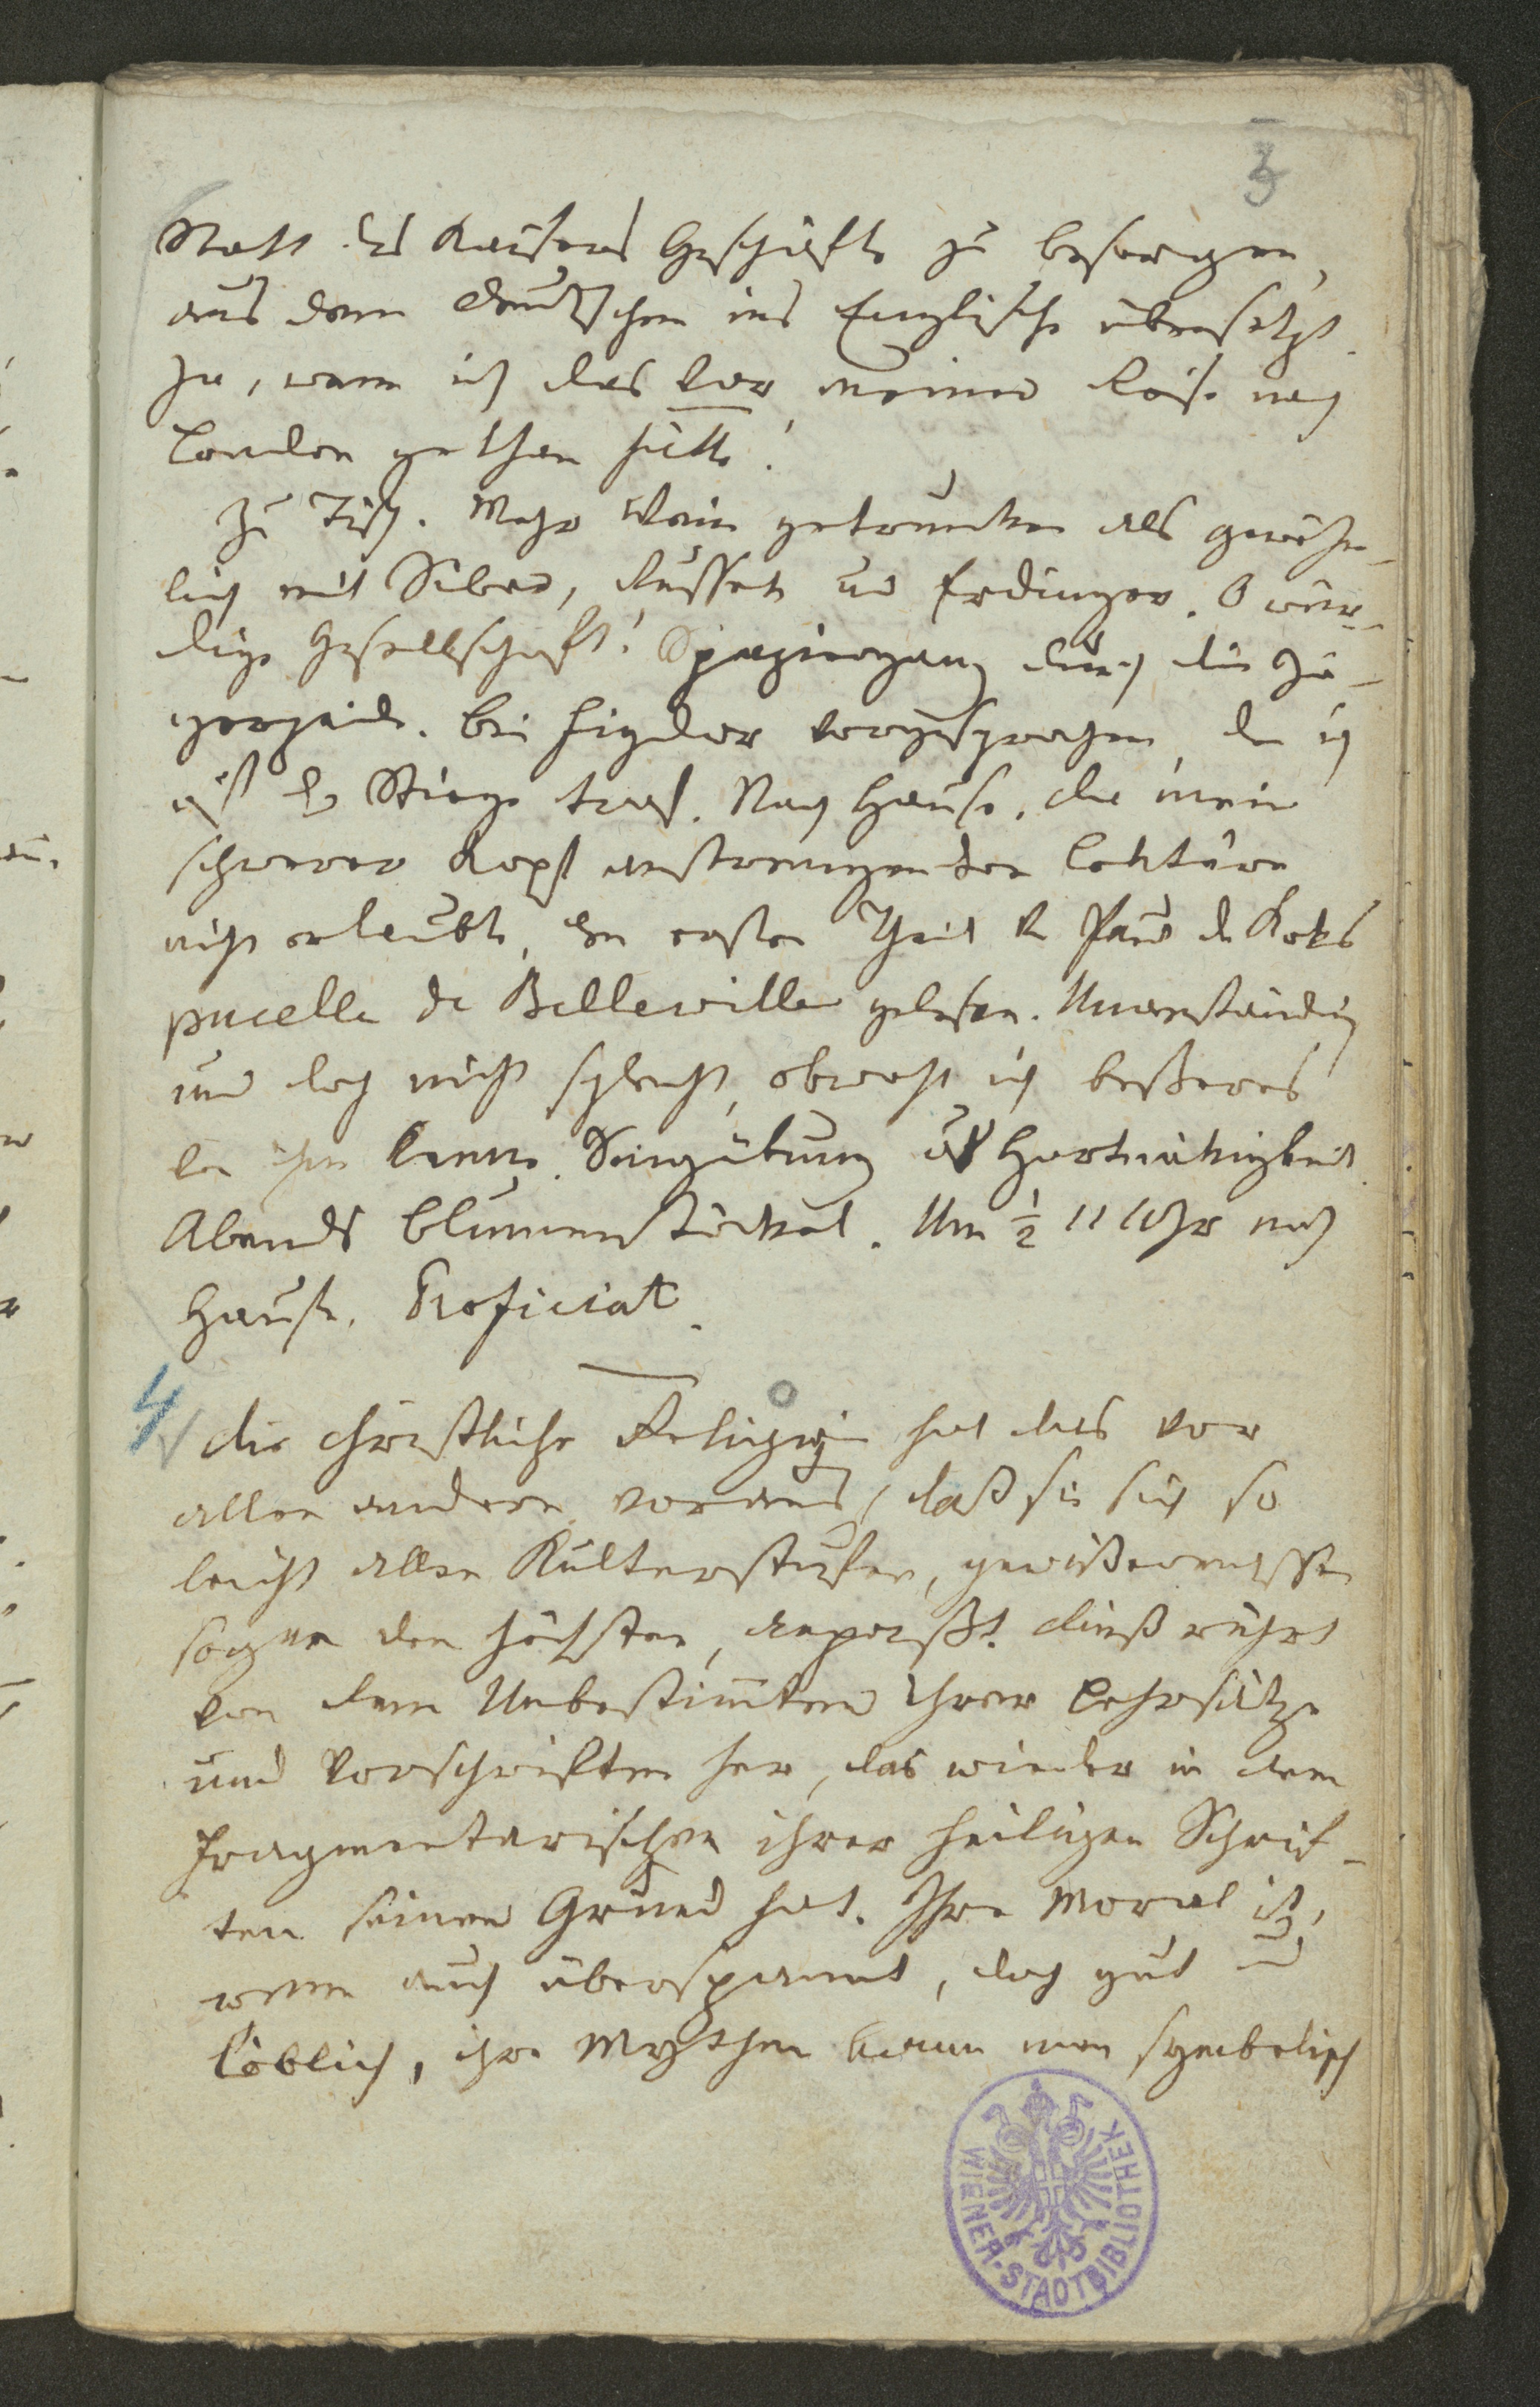 3
Statt des Kaisers Geschäfte zu besorgen,
aus dem Deutschen ins Englische übersetzt.
Ja, wenn ich das vor meiner Reise nach
London gethan hätte!
Zu Tisch. Mehr Wein getrunken als gewöhn-
lich mit Silber, und Erdinger. O wür-
dige Gesellschaft! Spaziergang durch die Jä-
gerzeile. Bei Figdor vorgesprochen, den ich
auf der Stiege traf. Nach Hause, da mein
schwerer Kopf anstrengendere Lektüre
nicht erlaubte, den ersten Theil v Paul de Koks
pucelle de Belleville gelesen. Unanständig
und doch nicht schlecht, obwohl ich beßeres
von ihm kenne. Singübung und Hartnäckigkeit
Abends Blumenstöckel. Um ½ 11 Uhr nach
Hause. Proficiat.
4
Die christliche Religion hat das vor
allen andern voraus, daß sie sich so
leicht allen Kulturstufen, gewißermassen
sogar den höchsten, anpaßt. Dieß rührt
von dem Unbestimmten ihrer Lehrsätze
und Vorschriften her, das wieder in dem
Fragmentarischen ihrer heiligen Schrif-
ten seinen Grund hat. Ihre Moral ist,
wenn auch überspannt, doch gut und
löblich, ihre Mythen kann man symbolisch
WIENER-STADTBIBLIOTHEK